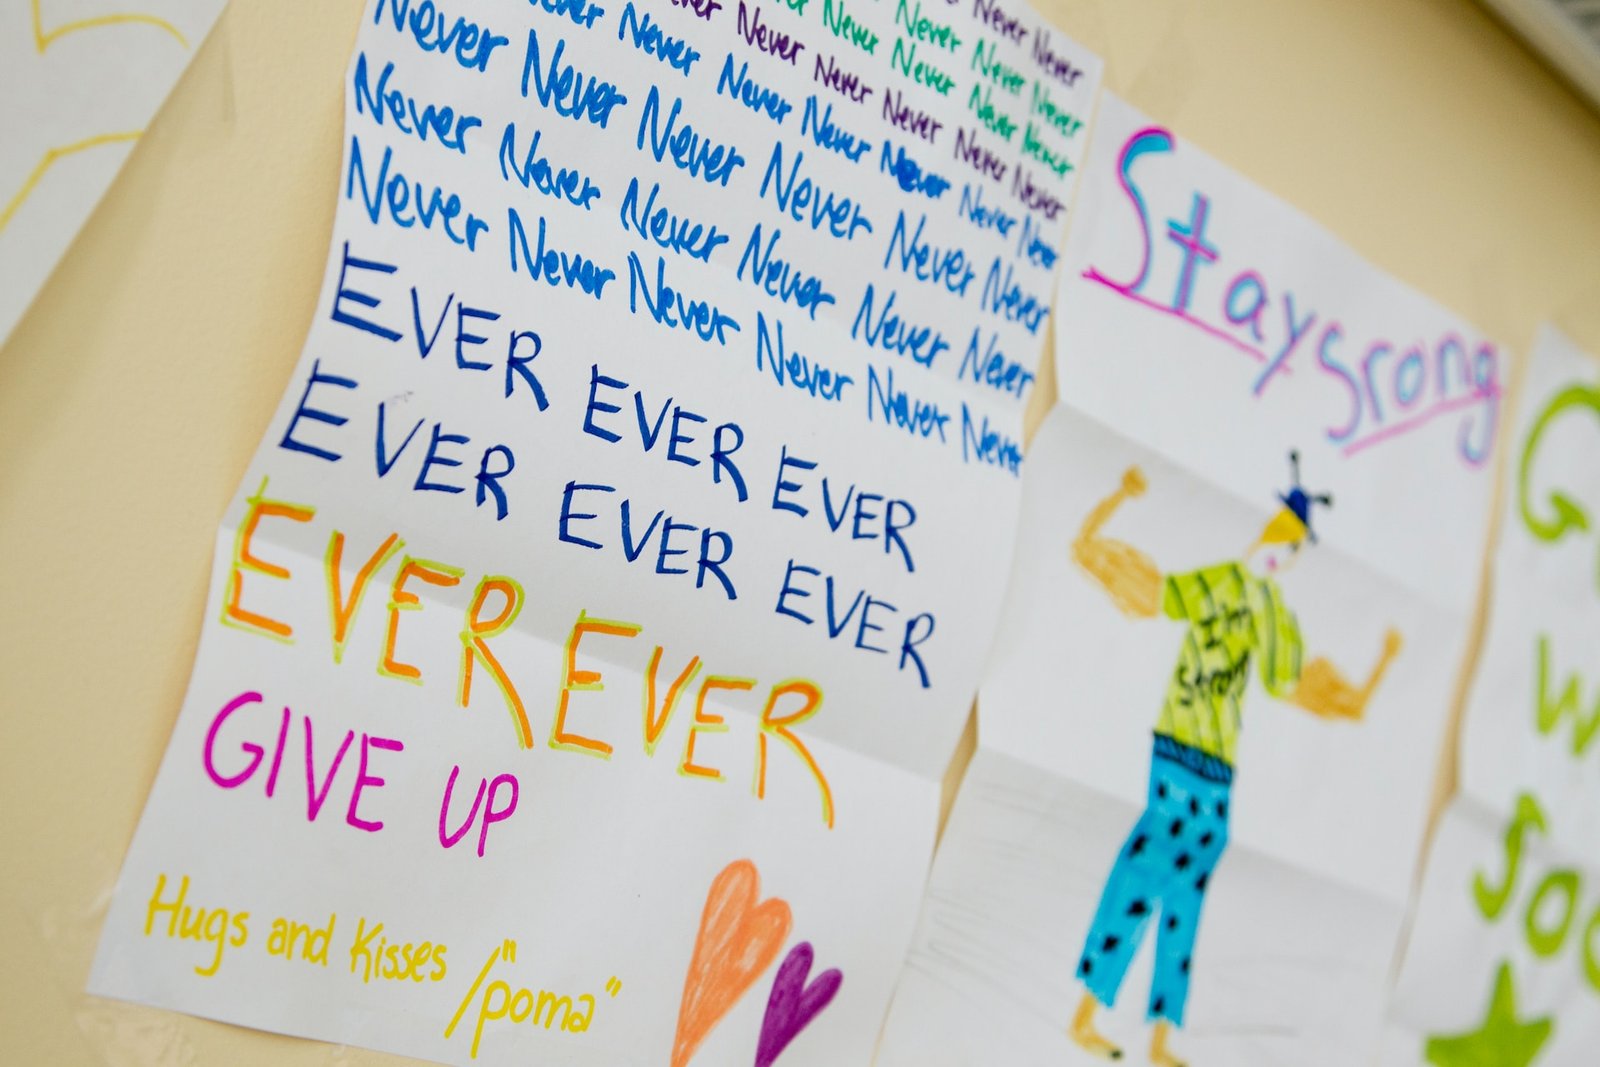 Never Never
Never Never Never
Never Never Never Never
Never Never Never Never Never
Never Never Never Never Never Never
Never Never Never Never Never Never
Never Never Never Never Never Never
Never Never Never Never Never Never
EVER EVER EVER
EVER EVER EVER
EVER EVER
GIVE UP
Hugs and Kisses /"poma"
Stay Srong
I'm
Strong